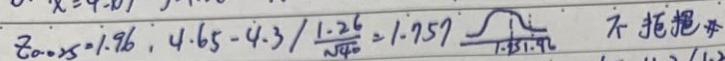 Z₀.₀₂₅=1.96, 4.65-4.3 / 1.26/√40 = 1.757 1.96 不拒絕